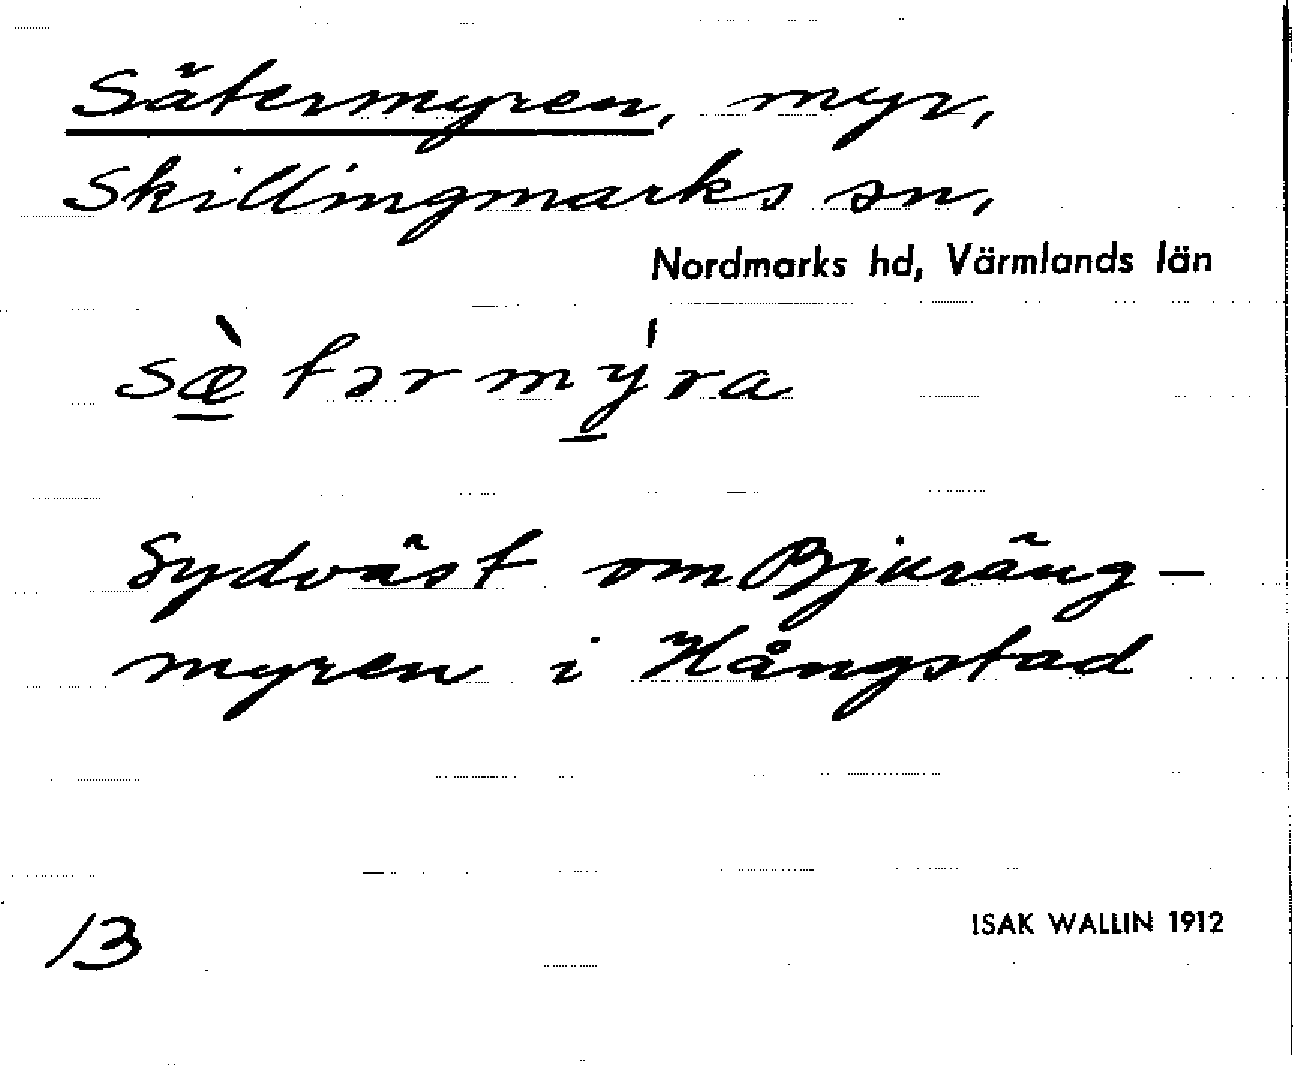 Sätermyren, myr,
Skillingmarks sn,
Nordmarks hd, Värmlands län
sæ̀tərmýra
Sydväst om Bjuräng-
myren i Hångstad
13
ISAK WALLIN 1912